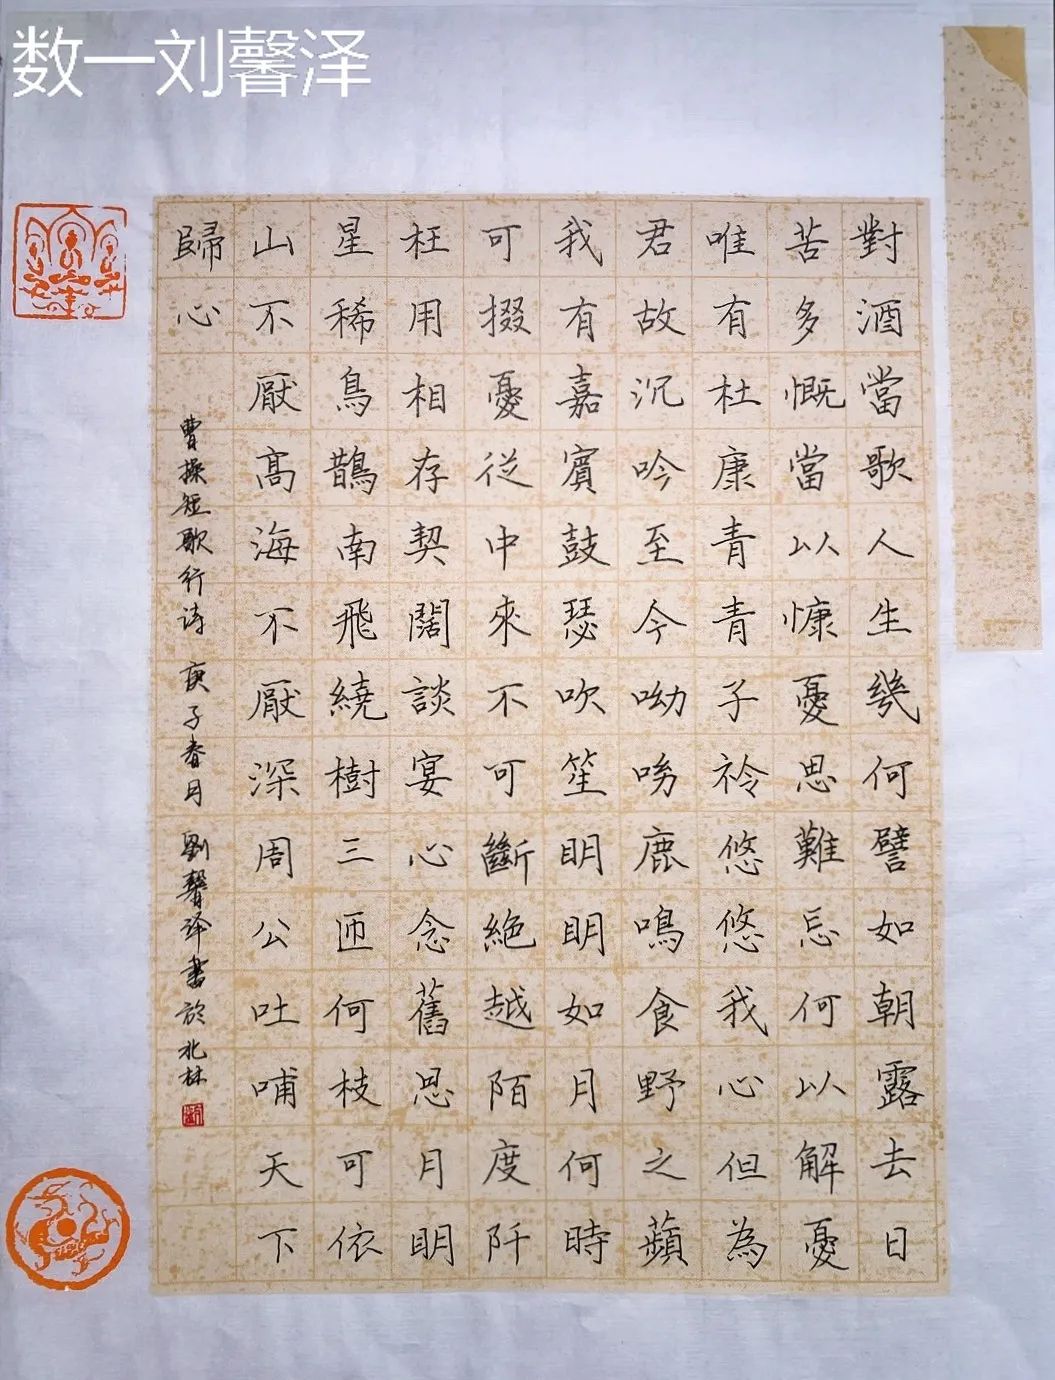 数一刘馨泽
對酒當歌人生幾何譬如朝露去日
苦多慨當以慷憂思難忘何以解憂
唯有杜康青青子衿悠悠我心但為
君故沉吟至今呦呦鹿鳴食野之蘋
我有嘉賓鼓瑟吹笙明明如月何時
可掇憂從中來不可斷絕越陌度阡
枉用相存契闊談宴心念舊恩月明
星稀烏鵲南飛繞樹三匝何枝可依
山不厭高海不厭深周公吐哺天下
歸心
曹操短歌行诗 庚子春月 劉馨泽書於北林